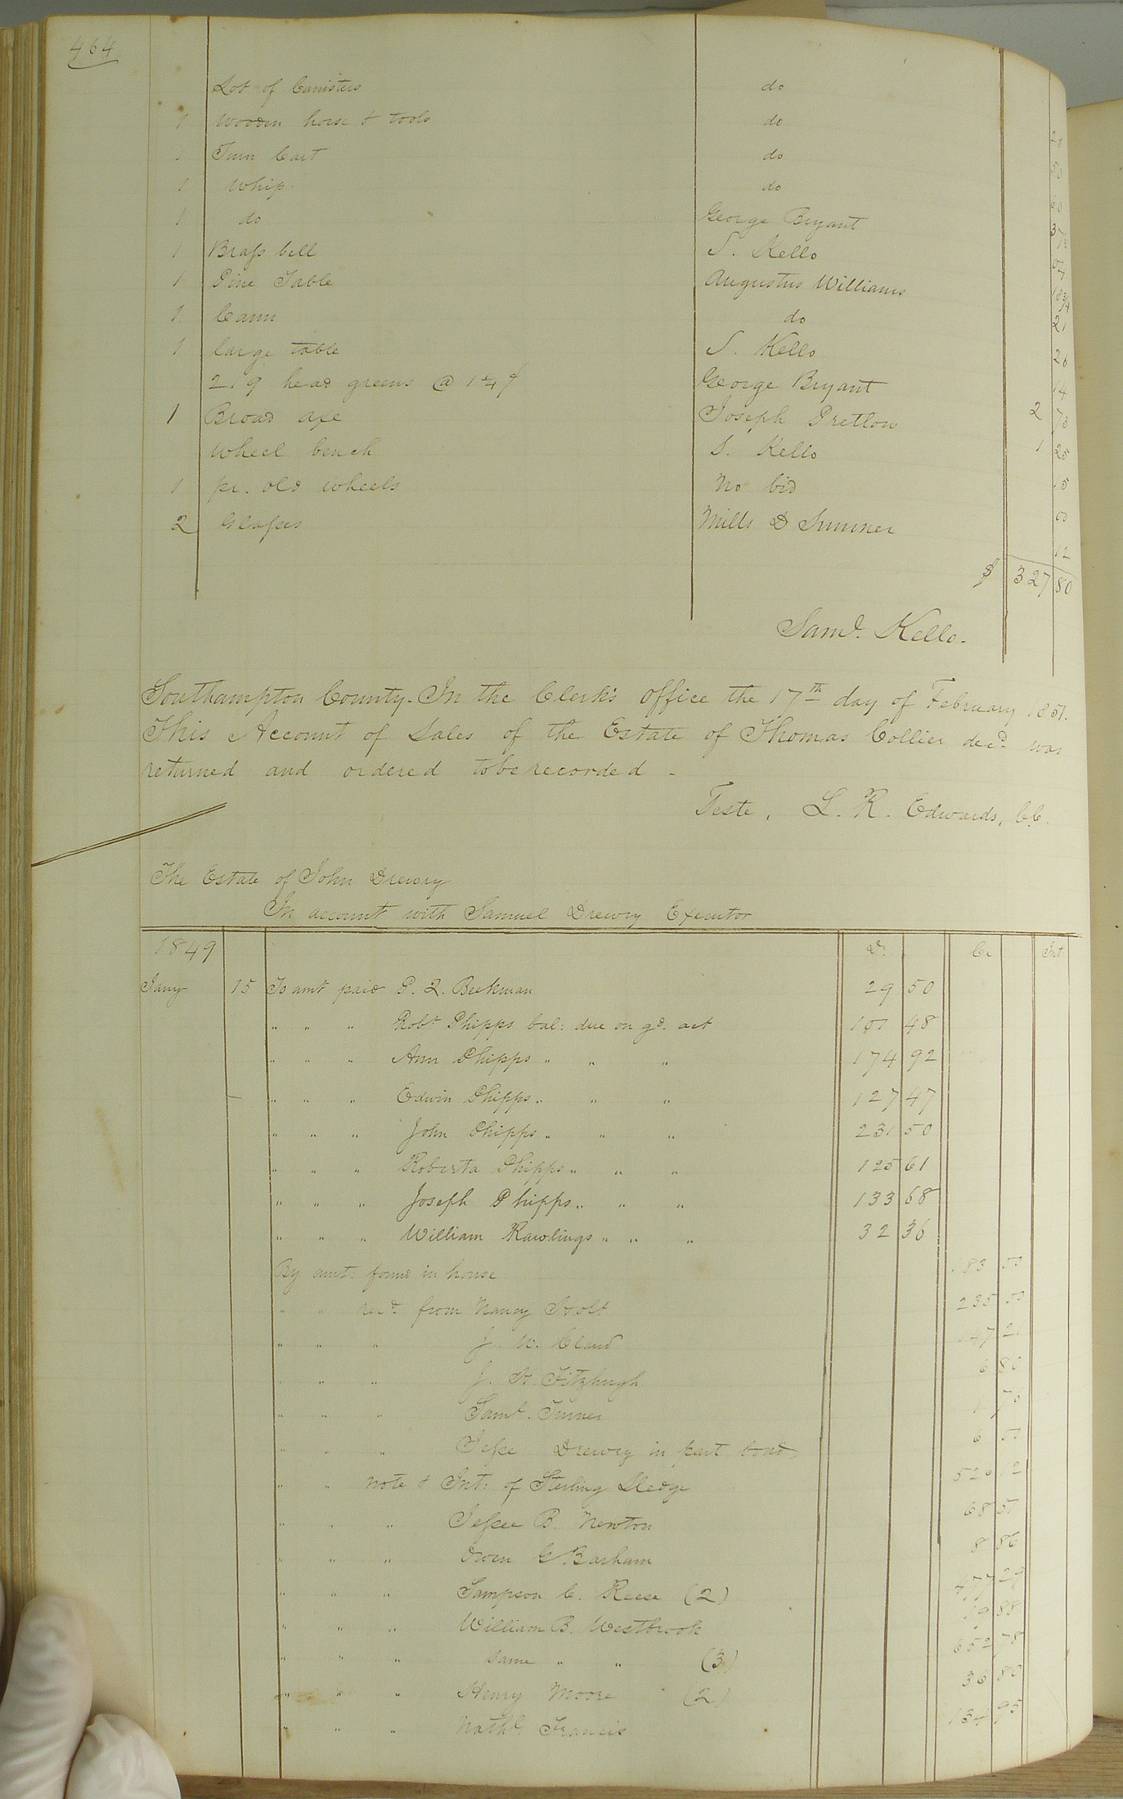 464
Lot of Canisters do
1 Wooden horse & tools do
1 Turn Cart do
1 Whip do
1 do George Bryant
1 Brass bell S. Kello
1 Pine Table Augustus Williams
1 Cann do
1 large table S. Kello 26
219 head greens @ 1¼¢ George Bryant 2
1 Broad axe Joseph Pretlow 1 25
Wheel bench S. Kello
1 pr. old wheels No bid
2 Glasses Mills D Sumner 12
$ 327 80
Saml. Kello.
Southampton County. In the Clerk's Office the 17th day of February 1851.
This Account of Sales of the Estate of Thomas Collier decd. was
returned and ordered to be recorded -
Teste, L. R. Edwards, CC.
The Estate of John Drewry
In account with Samuel Drewry Executor
1849 Dr. Cr. Int
Jany 15 To amt paid P. Q. Beekman 29 50
" " " Robt Phipps bal: due on gd. act 48
" " " Ann Phipps " " " 174 92
" " " Edwin Phipps " " " 127 47
" " " John Phipps " " " 231 50
" " " Roberta Phipps " " " 125 61
" " " Joseph Phipps " " " 133 68
" " " William Rawlings " " " 32 36
By amt: found in house
" " recd. from Nancy 235
" " " J. W. Claud
" " " J. H. Fitzhugh 6 80
" " " Saml. Turner
" " " Jesse Drewry in part bond 6
" " note & Int: of Sterling Sledge
" " " Jessee B. Newton 68
" " " Owen G Barham 8 86
" " " Sampson C. Reese (2)
" " " William B. Westbrook 88
" " " same " " (3) 652 78
" " " Henry Moore (2) 36 80
" " " Nathl Francis 134 95